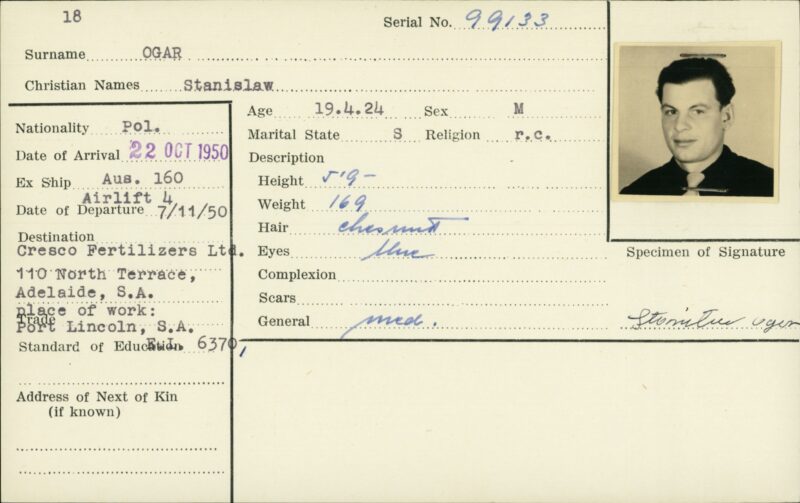 18
Serial No. 99133
Surname OGAR
Christian Names Stanislaw
Nationality Pol.
Date of Arrival 22 OCT 1950
Ex Ship Aus. 160
Airlift 4
Date of Departure 7/11/50
Destination
Cresco Fertilizers Ltd.
110 North Terrace,
Adelaide, S.A.
place of work:
Trade
Port Lincoln, S.A.
Standard of Education E.L. 6370,
Address of Next of Kin
(if known)
Age 19.4.24 Sex M
Marital State S Religion r.c.
Description
Height 5'9-
Weight 169
Hair chesnutt
Eyes blue
Complexion
Scars
General med.
Specimen of Signature
Stanislaw Ogar